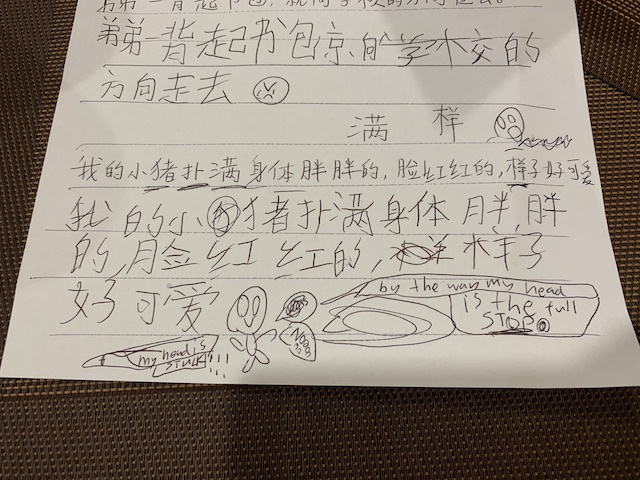 弟弟一背起书包,就向学校的方向走去。
弟弟一背起书包京,向学校的
方向走去
满 样
我的小猪扑满身体胖胖的,脸红红的,样子好可爱
我的小猪扑满身体胖胖
的,脸红红的,样子
好可爱
by the way my head
is the full
STOP
my head is
STUCK!!!